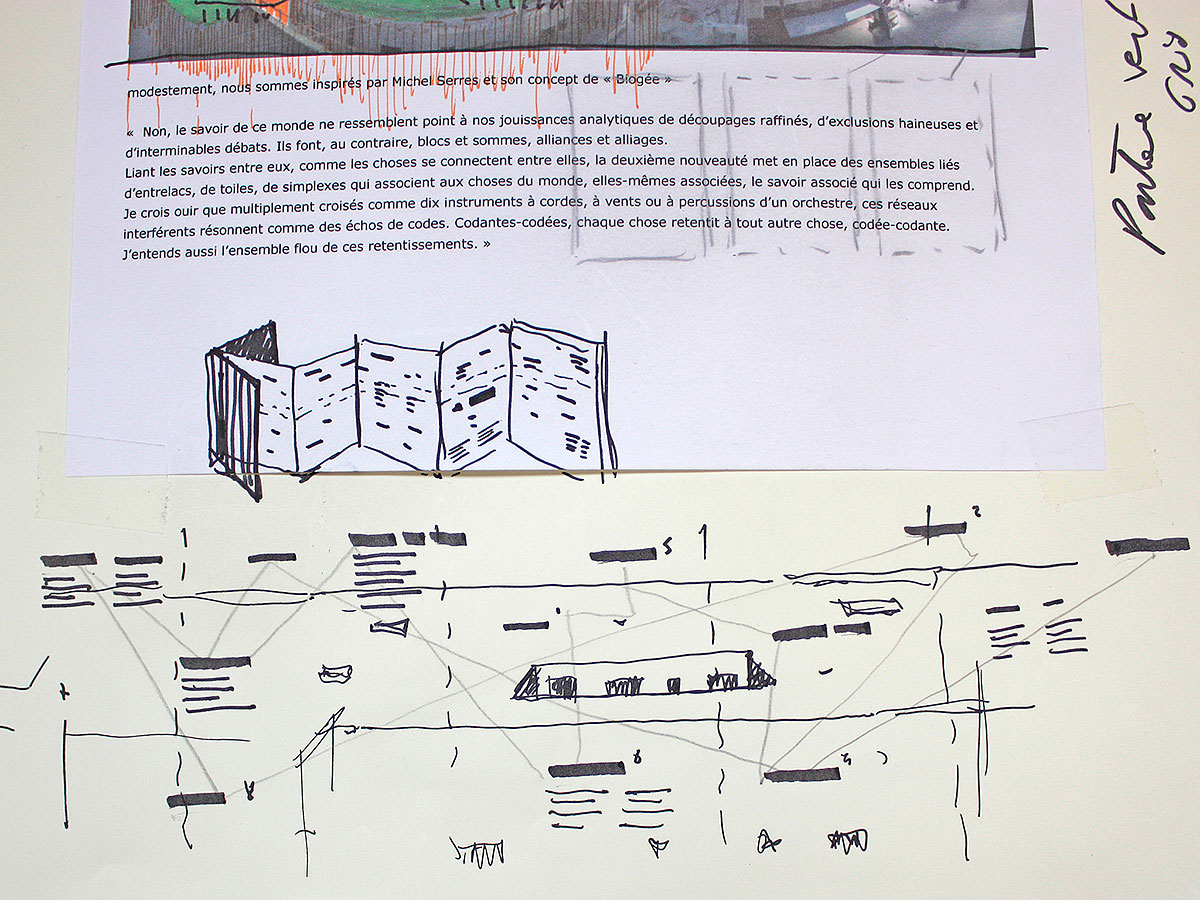 modestement, nous sommes inspirés par Michel Serres et son concept de « Biogée »
« Non, le savoir de ce monde ne ressemblent point à nos jouissances analytiques de découpages raffinés, d’exclusions haineuses et
d’interminables débats. Ils font, au contraire, blocs et sommes, alliances et alliages.
Liant les savoirs entre eux, comme les choses se connectent entre elles, la deuxième nouveauté met en place des ensembles liés
d’entrelacs, de toiles, de simplexes qui associent aux choses du monde, elles-mêmes associées, le savoir associé qui les comprend.
Je crois ouir que multiplement croisés comme dix instruments à cordes, à vents ou à percussions d’un orchestre, ces réseaux
interférents résonnent comme des échos de codes. Codantes-codées, chaque chose retentit à tout autre chose, codée-codante.
J’entends aussi l’ensemble flou de ces retentissements. »
vert